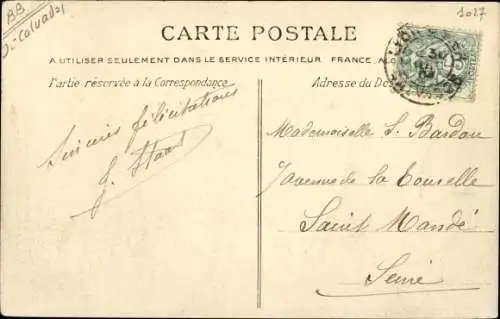 BB
D-Calvados
1027
CARTE POSTALE
A UTILISER SEULEMENT DANS LE SERVICE INTÉRIEUR FRANCE,
Partie réservée à la Correspondance
Adresse du Des
Sincères félicitations
Mademoiselle S. Bardou
7 avenue de la Tourelle
Saint Mandé
Seine